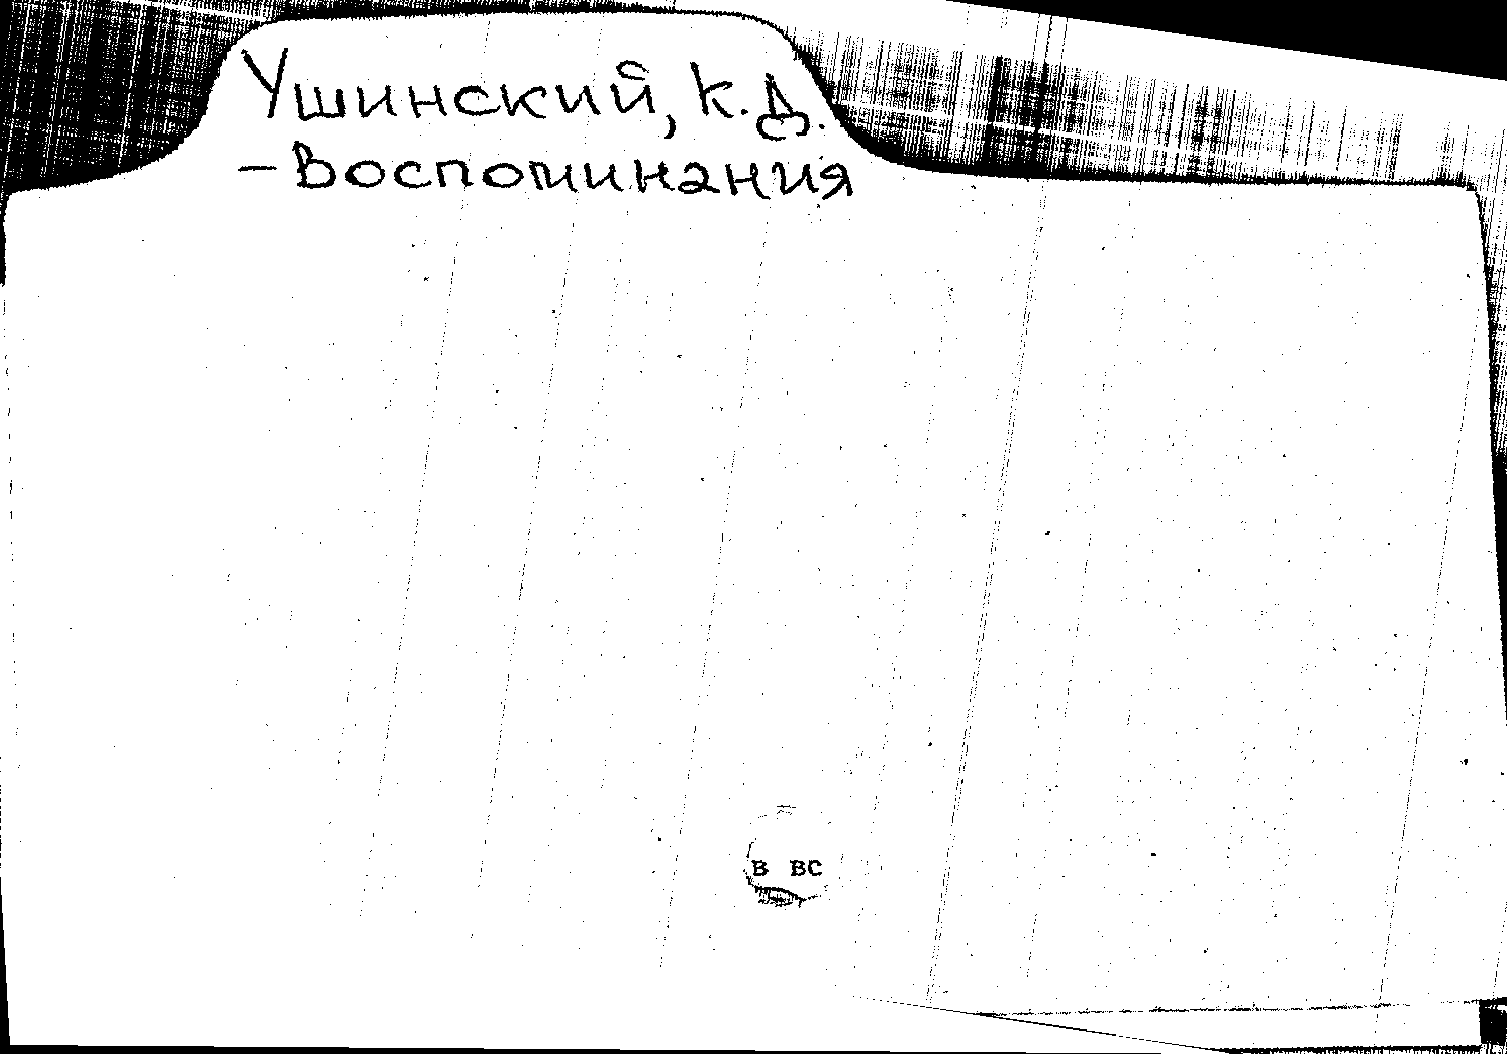 Ушинский, К.Д.
- Воспоминания
в вс